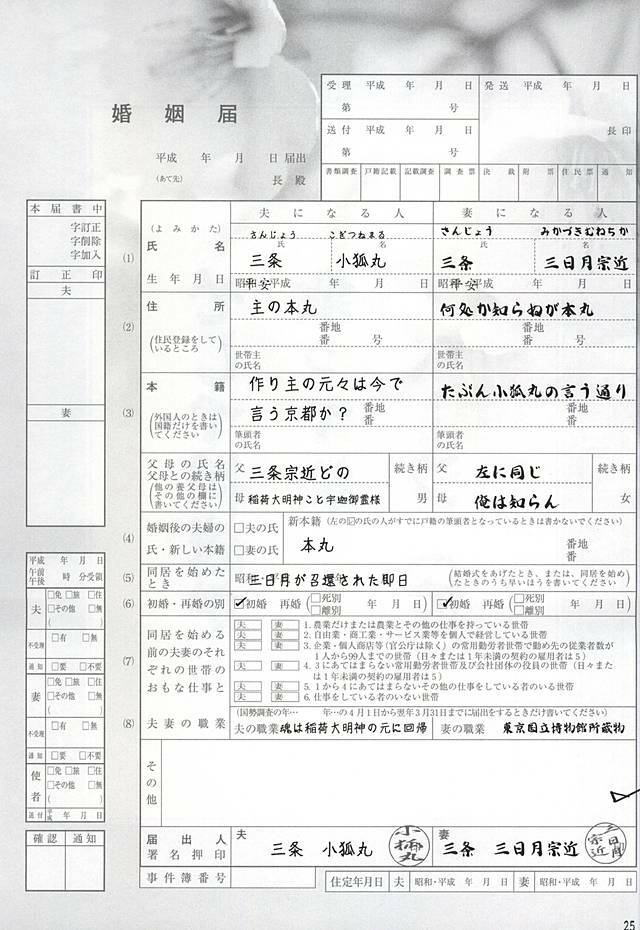 婚姻届
平成 年 月 日 届出
(あて先) 長 殿
受理 平成 年 月 日
第 号
送付 平成 年 月 日
第 号
発送 平成 年 月 日
長印
書類調査 戸籍記載 記載調査 調査票 決裁 附票 住民票 通知
本届書中
字訂正
字削除
字加入
訂正印
夫
妻
夫になる人 妻になる人
(1)
(よみかた) さんじょう こぎつねまる さんじょう みかづきむねちか
氏 名 氏 名
氏名 三条 小狐丸 三条 三日月宗近
生年月日 昭和・平成 平安 年 月 日 昭和・平成 平安 年 月 日
(2)
住所 主の本丸 何処か知らねが本丸
番地 番地
(住民登録をしているところ) 番 号 番 号
世帯主の氏名 世帯主の氏名
(3)
本籍 作り主の元々は今で たぶん小狐丸の言う通り
言う京都か? 番地 番地
番 番
(外国人のときは国籍だけを書いてください)
筆頭者の氏名 筆頭者の氏名
父母の氏名
父母との続き柄
(他の養父母はその他の欄に書いてください)
父 三条宗近どの 続き柄 父 左に同じ 続き柄
母 稲荷大明神こと宇迦御霊様 男 母 俺は知らん 女
(4)
婚姻後の夫婦の氏・新しい本籍
□夫の氏 新本籍(左の☑の氏の人がすでに戸籍の筆頭者となっているときは書かないでください)
□妻の氏 本丸 番地
番
(5) 同居を始めたとき 昭和 三日月が召還された即日 (結婚式をあげたとき、または、同居を始めたときのうち早いほうを書いてください)
(6) 初婚・再婚の別 ☑初婚 再婚(□死別 □離別 年 月 日) ☑初婚 再婚(□死別 □離別 年 月 日)
(7)
同居を始める前の夫妻のそれぞれの世帯のおもな仕事と
夫 妻 1.農業だけまたは農業とその他の仕事を持っている世帯
夫 妻 2.自由業・商工業・サービス業等を個人で経営している世帯
夫 妻 3.企業・個人商店等(官公庁は除く)の常用勤労者世帯で勤め先の従業者数が
1人から99人までの世帯(日々または1年未満の契約の雇用者は5)
夫 妻 4.3にあてはまらない常用勤労者世帯及び会社団体の役員の世帯(日々また
は1年未満の契約の雇用者は5)
夫 妻 5.1から4にあてはまらないその他の仕事をしている者のいる世帯
夫 妻 6.仕事をしている者のいない世帯
(8) 夫妻の職業
(国勢調査の年… 年…の4月1日から翌年3月31日までに届出をするときだけ書いてください)
夫の職業 魂は稲荷大明神の元に回帰 妻の職業 東京国立博物館所蔵物
その他
届出人署名押印 夫 三条 小狐丸 小狐丸 妻 三条 三日月宗近 三日月宗近
事件簿番号 住定年月日 夫 昭和・平成 年 月 日 妻 昭和・平成 年 月 日
平成 年 月 日
午前
午後 時 分受領
夫 □免 □旅 □住
□その他 □無
( )
不受理 □有 □無
通知 □要 □不要
妻 □免 □旅 □住
□その他 □無
( )
不受理 □有 □無
通知 □要 □不要
使者 □免 □旅 □住
□その他 □無
( )
送付 平成 年 月 日
確認 通知
25